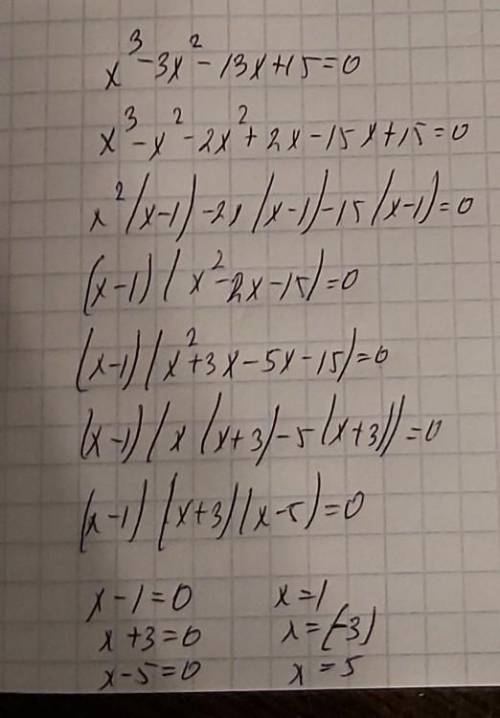 x³-3x²-13x+15=0
x³-x²-2x²+2x-15x+15=0
x²(x-1)-2x(x-1)-15(x-1)=0
(x-1)(x²-2x-15)=0
(x-1)(x²+3x-5x-15)=0
(x-1)(x(x+3)-5(x+3))=0
(x-1)(x+3)(x-5)=0
x-1=0 x=1
x+3=0 x=(-3)
x-5=0 x=5